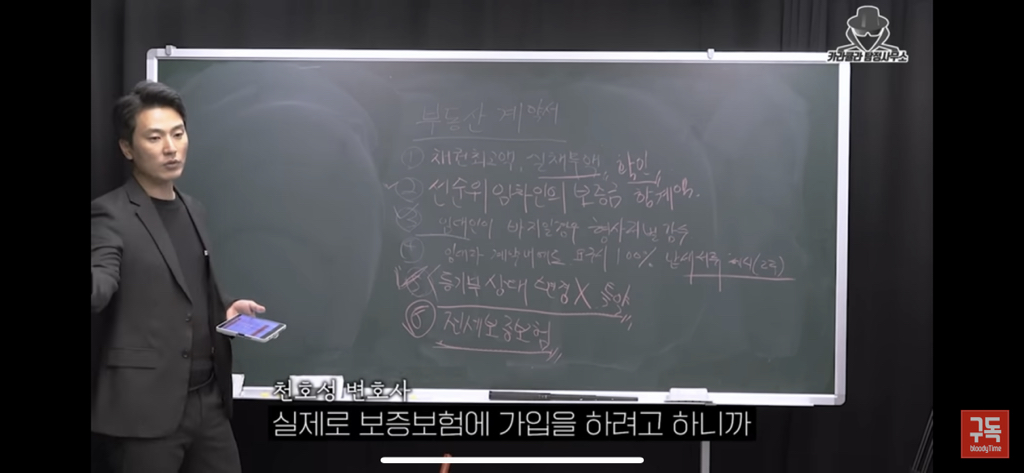 카라큘라 탐정사무소
부동산 계약서
① 채권최고액, 실채무액, 확인
② 선순위 임차인의 보증금 합계액.
③ 임대인이 바지일경우 형사처벌 감수
④ 임차인 계약내역 요구시 100%
⑤ 등기부 상태 변경 X 특약
⑥ 전세보증보험
천호성 변호사
실제로 보증보험에 가입을 하려고 하니까
구독
bloodyTime